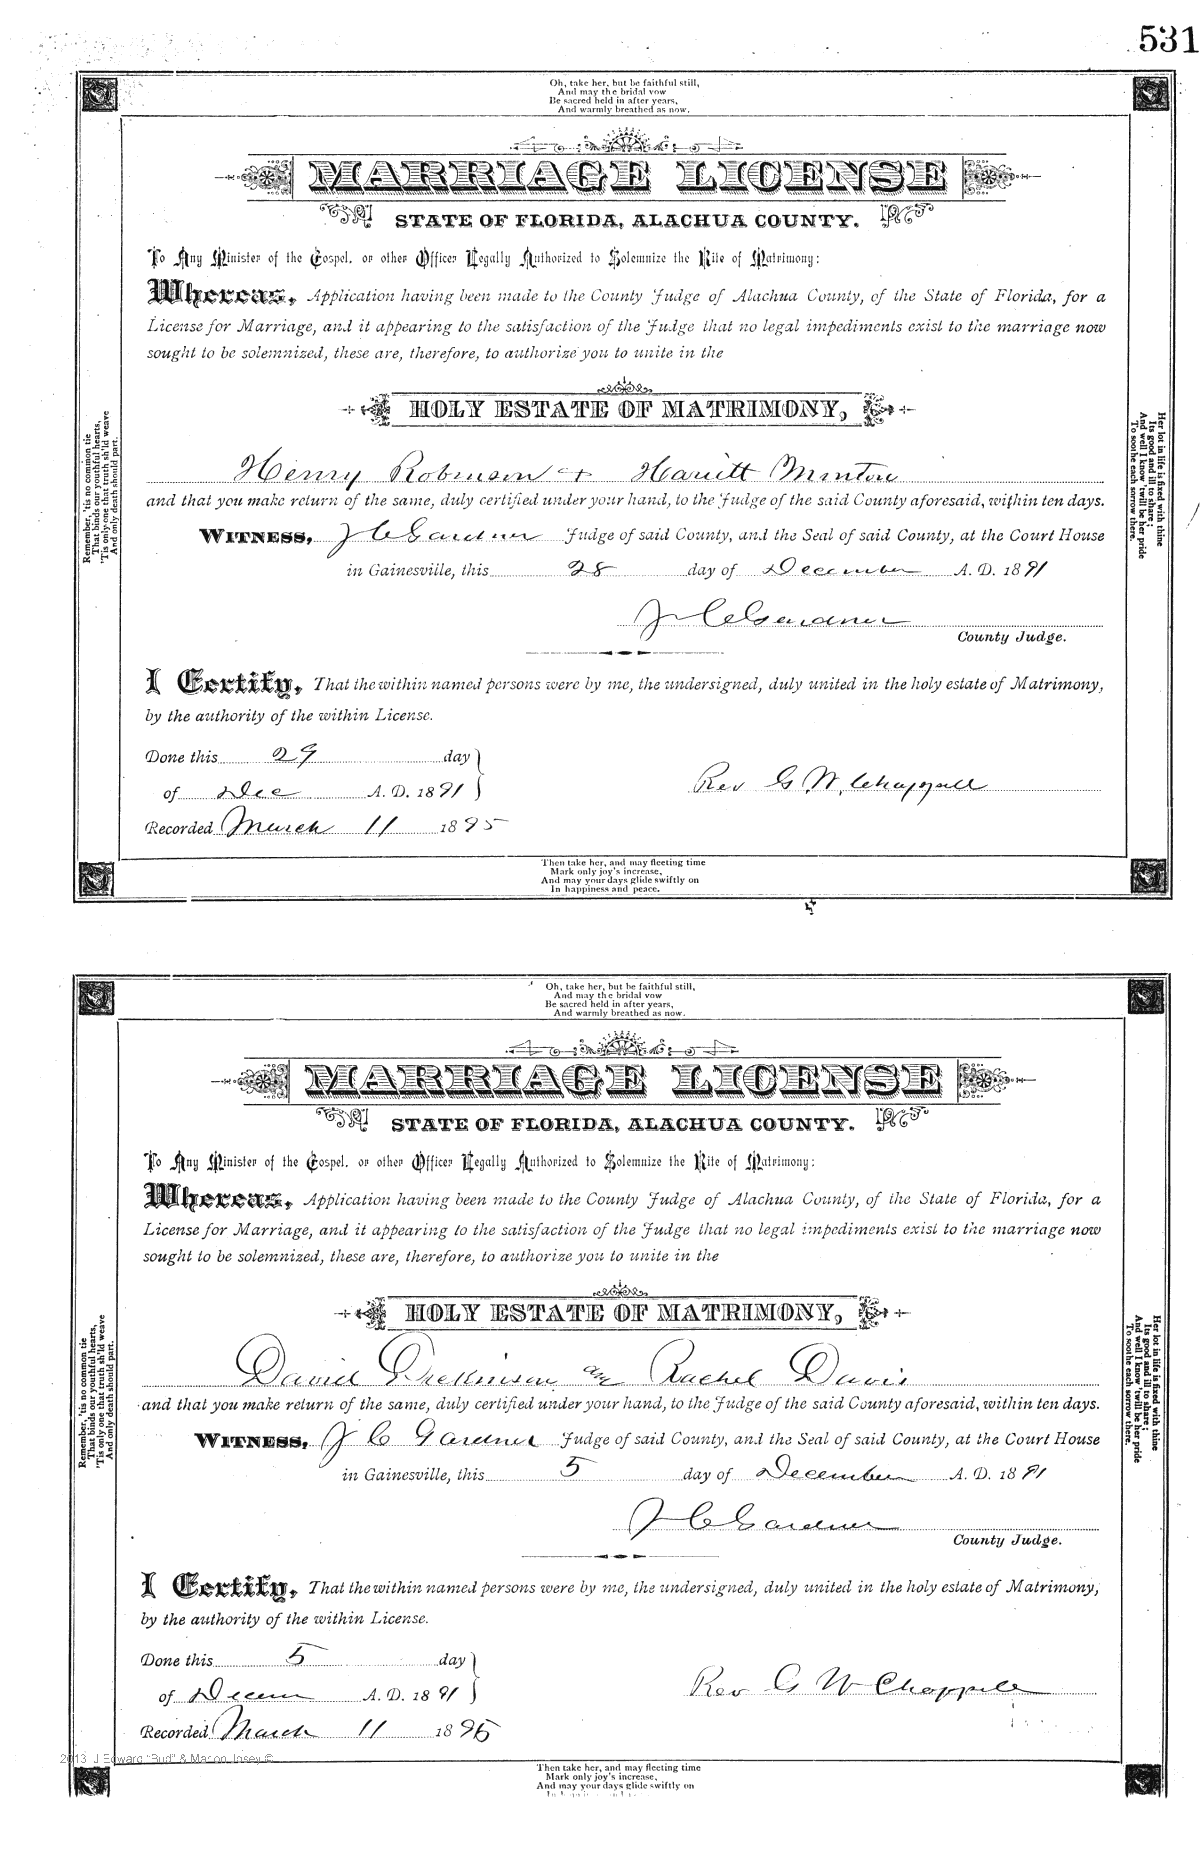 531
Oh, take her, but be faithful still,
And may the bridal vow
Be sacred held in after years,
And warmly breathed as now.
MARRIAGE LICENSE
STATE OF FLORIDA, ALACHUA COUNTY.
To Any Minister of the Gospel, or other Officer Legally Authorized to Solemnize the Rite of Matrimony:
Whereas, Application having been made to the County Judge of Alachua County, of the State of Florida, for a
License for Marriage, and it appearing to the satisfaction of the Judge that no legal impediments exist to the marriage now
sought to be solemnized, these are, therefore, to authorize you to unite in the
HOLY ESTATE OF MATRIMONY,
Henry Robinson + Harritt Minton
and that you make return of the same, duly certified under your hand, to the Judge of the said County aforesaid, within ten days.
WITNESS, J C Gardner Judge of said County, and the Seal of said County, at the Court House
in Gainesville, this 28 day of December A. D. 1891
J C Gardner
County Judge.
I Certify, That the within named persons were by me, the undersigned, duly united in the holy estate of Matrimony,
by the authority of the within License.
Done this 29 day
of Dec A. D. 1891
Rev G. W. Chappell
Recorded March 11 1895
Remember, 'tis no common tie
That binds our youthful hearts,
'Tis only one that truth sh'ld weave
And only death should part.
Her lot in life is fixed with thine
Its good and ill to share;
And well I know 'twill be her pride
To soothe each sorrow there.
Then take her, and may fleeting time
Mark only joy's increase,
And may your days glide swiftly on
In happiness and peace.
Oh, take her, but be faithful still,
And may the bridal vow
Be sacred held in after years,
And warmly breathed as now.
MARRIAGE LICENSE
STATE OF FLORIDA, ALACHUA COUNTY.
To Any Minister of the Gospel, or other Officer Legally Authorized to Solemnize the Rite of Matrimony:
Whereas, Application having been made to the County Judge of Alachua County, of the State of Florida, for a
License for Marriage, and it appearing to the satisfaction of the Judge that no legal impediments exist to the marriage now
sought to be solemnized, these are, therefore, to authorize you to unite in the
HOLY ESTATE OF MATRIMONY,
David Dickinson and Rachel Davis
and that you make return of the same, duly certified under your hand, to the Judge of the said County aforesaid, within ten days.
WITNESS, J C Gardner Judge of said County, and the Seal of said County, at the Court House
in Gainesville, this 5 day of December A. D. 1891
J C Gardner
County Judge.
I Certify, That the within named persons were by me, the undersigned, duly united in the holy estate of Matrimony,
by the authority of the within License.
Done this 5 day
of Decem A. D. 1891
Rev G W Chappell
Recorded March 11 1895
Remember, 'tis no common tie
That binds our youthful hearts,
'Tis only one that truth sh'ld weave
And only death should part.
Her lot in life is fixed with thine
Its good and ill to share;
And well I know 'twill be her pride
To soothe each sorrow there.
2013 J Edward "Bud" & Marion Josey ©
Then take her, and may fleeting time
Mark only joy's increase,
And may your days glide swiftly on